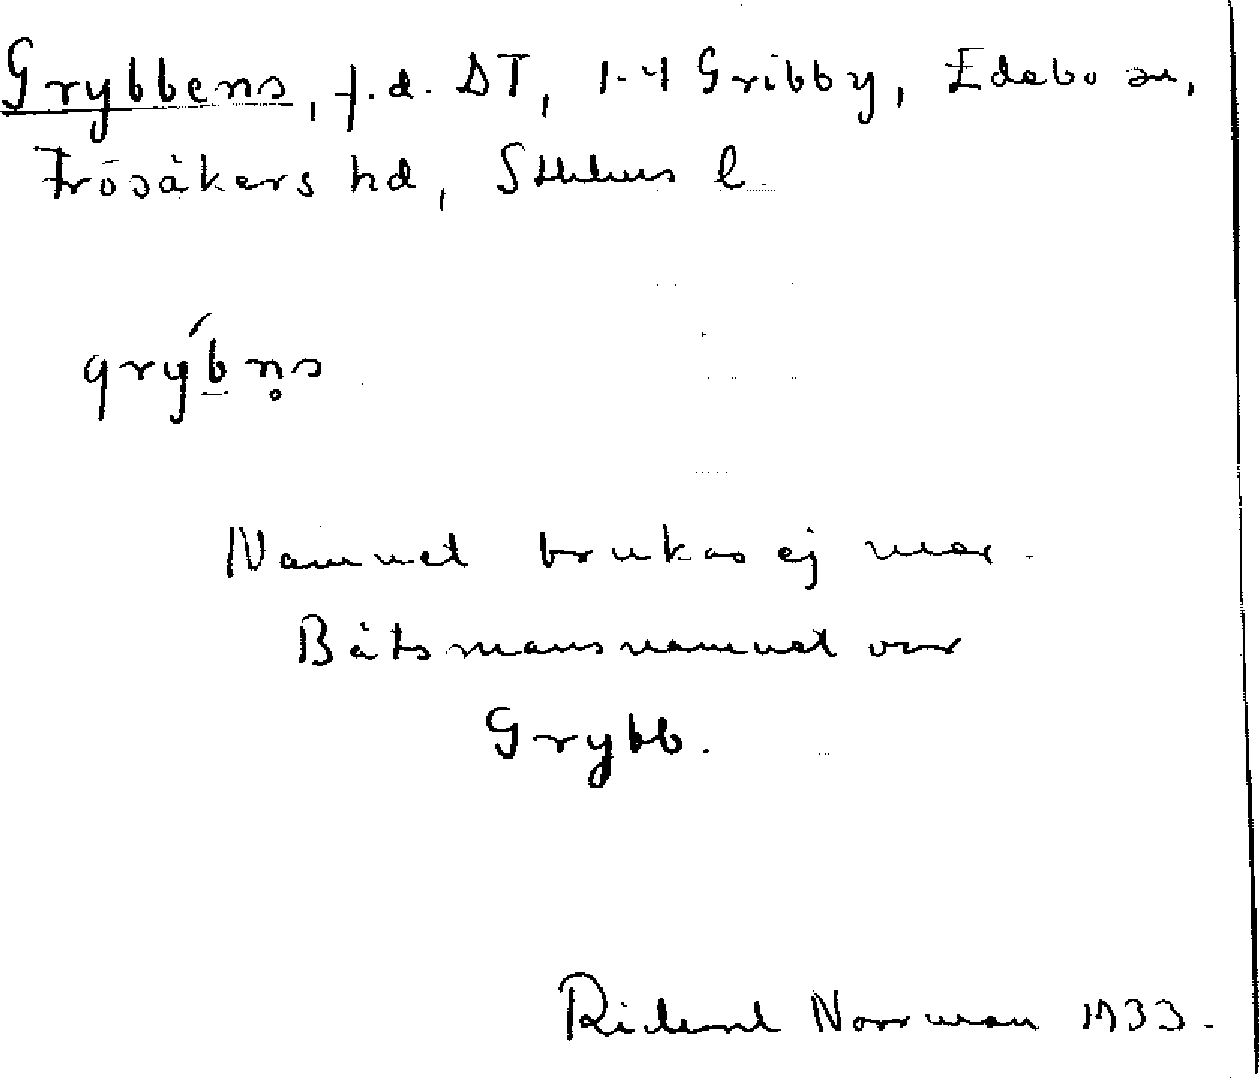 Grybbens, f.d. BT, 1-4 Gribby, Edebo sn,
Frösåkers hd, Sthlms l.
grýb̲n̥s
Namnet brukas ej mer.
Båtsmansnamnet var
Grybb.
Rickard Norrman 1933.